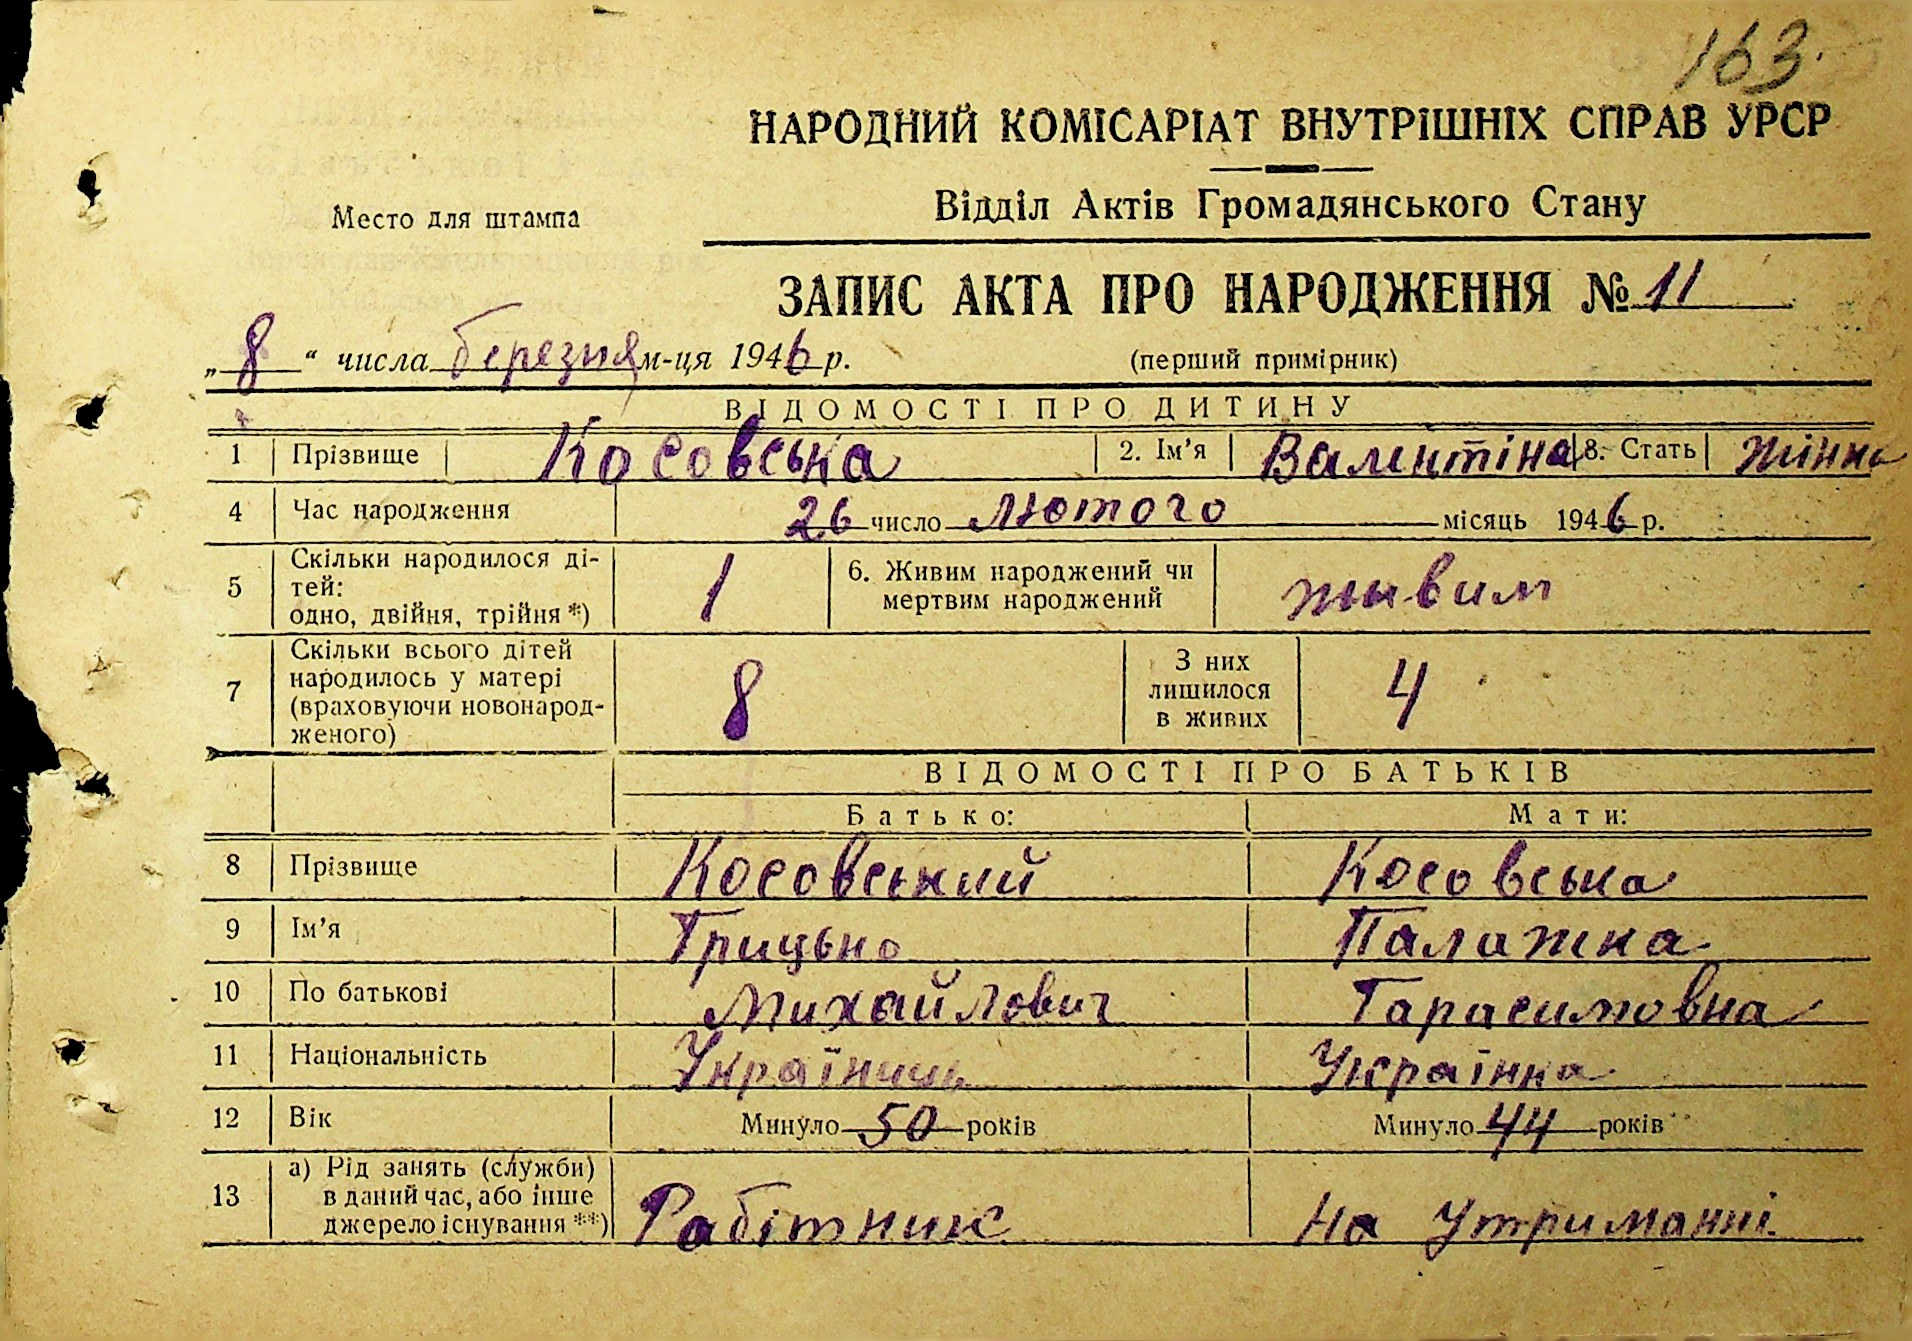 163.
НАРОДНИЙ КОМІСАРІАТ ВНУТРІШНІХ СПРАВ УРСР
Место для штампа
Відділ Актів Громадянського Стану
ЗАПИС АКТА ПРО НАРОДЖЕННЯ № 11
„8“ числа березня м-ця 1946 р.
(перший примірник)
ВІДОМОСТІ ПРО ДИТИНУ
1 Прізвище Косовська 2. Ім’я Валентіна 8. Стать жінка
4 Час народження 26 число лютого місяць 1946 р.
5 Скільки народилося ді-
тей:
одно, двійня, трійня *) 1
6. Живим народжений чи
мертвим народжений живим
7 Скільки всього дітей
народилось у матері
(враховуючи новонарод-
женого) 8
З них
лишилося
в живих 4
ВІДОМОСТІ ПРО БАТЬКІВ
Батько: Мати:
8 Прізвище Косовський Косовська
9 Ім’я Грицько Палажка
10 По батькові Михайлович Гарасимовна
11 Національність Українць Українка
12 Вік Минуло 50 років Минуло 44 років
13 а) Рід занять (служби)
в даний час, або інше
джерело існування **) Рабітник На утриманні